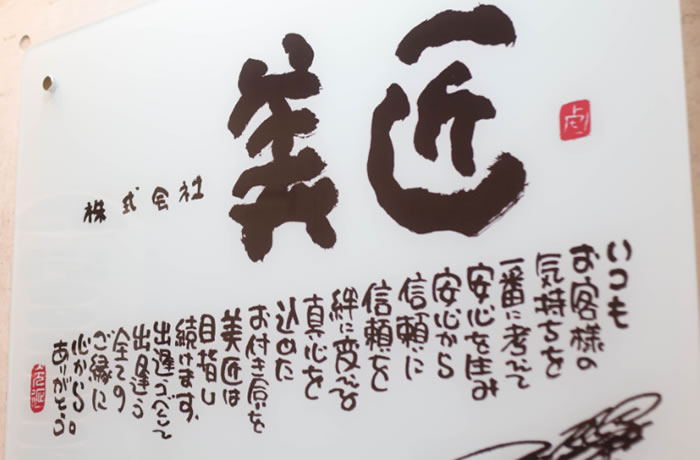 株式会社
美匠
いつも
お客様の
気持ちを
一番に考えて
安心を生み
安心から
信頼に
信頼を
絆に変える
真心を
込めた
お付き合いを
美匠は
目指し
続けます。
出逢えて
出逢う
全ての
ご縁に
心から
ありがとう。